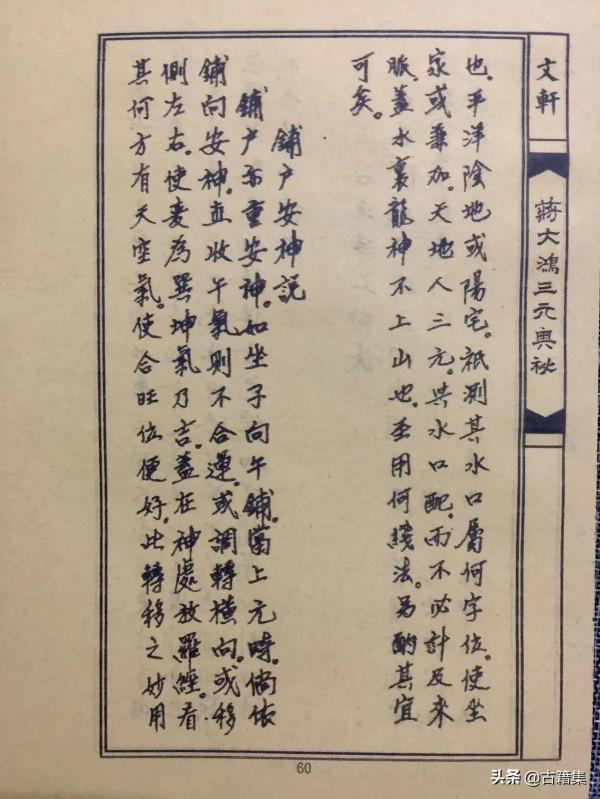 文軒
蔣大鴻三元奧祕
也。平洋陰地或陽宅。祇測其水口屬何字位。使坐
家或兼加。天地人三元。與水口配。而不必計及來
脈。蓋水裏龍神不上山也。至用何綫法。另酌其宜
可矣。
鋪户安神說
鋪户亦重安神。如坐子向午鋪。當上元時。倘依
鋪向安神。直收午氣則不合運。或調轉橫向。或移
側左右。使變為巽坤氣乃吉。蓋在神處放羅經。看
其何方有天空氣。使合旺位便好。此轉移之妙用
60
头条 @古籍集